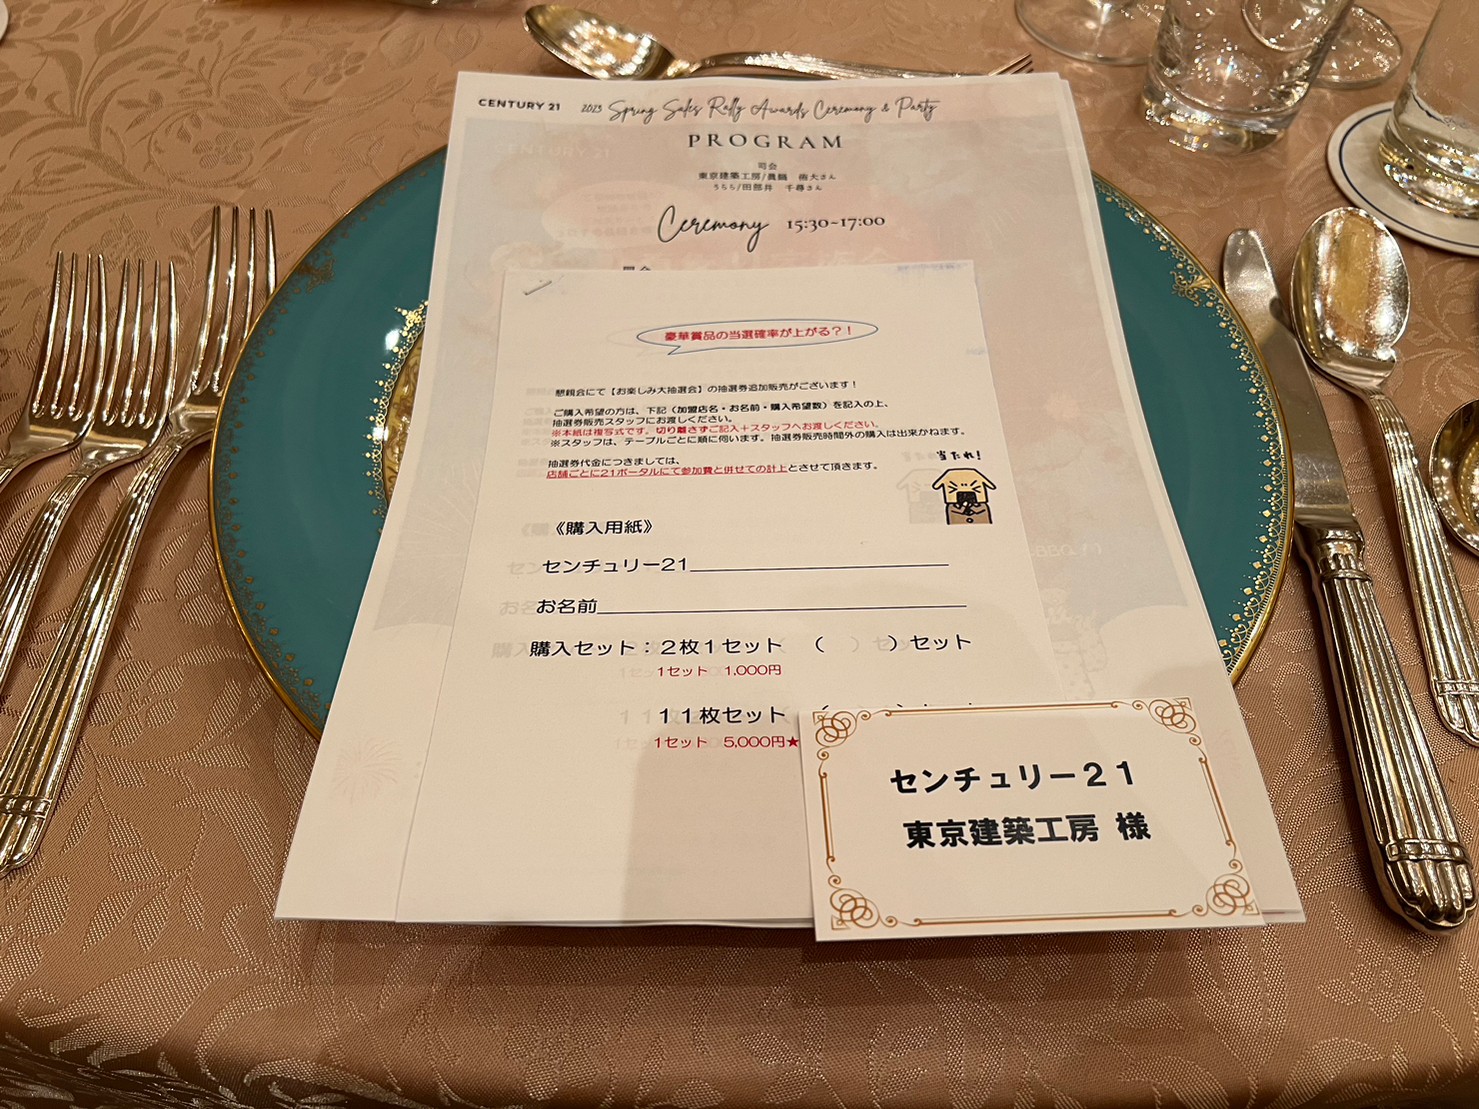 CENTURY 21 2023 Spring Sales Rally Awards Ceremony & Party
PROGRAM
司会
東京建築工房/眞鍋 侑大さん
うらら/田部井 千尋さん
Ceremony 15:30-17:00
豪華賞品の当選確率が上がる?!
懇親会にて【お楽しみ大抽選会】の抽選券追加販売がございます!
ご購入希望の方は、下記(加盟店名・お名前・購入希望数)を記入の上、
抽選券販売スタッフにお渡しください。
※本紙は複写式です。切り離さずご記入+スタッフへお渡しください。
※スタッフは、テーブルごとに順に伺います。抽選券販売時間外の購入は出来かねます。
抽選券代金につきましては、
店舗ごとに21ポータルにて参加費と併せての計上とさせて頂きます。
当たれ!
《購入用紙》
センチュリー21
お名前
購入セット:2枚1セット ( )セット
1セット 1,000円
11枚セット (
1セット 5,000円★
センチュリー21
東京建築工房 様